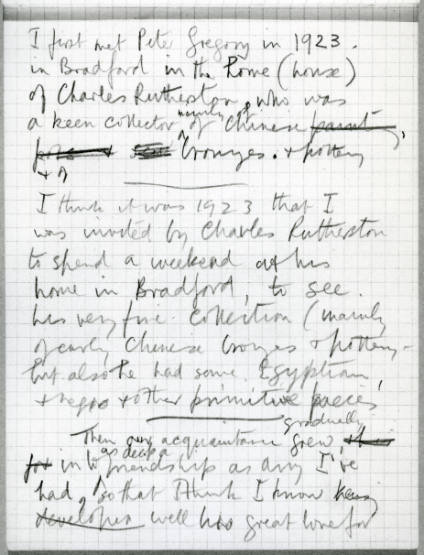 I first met Peter Gregory in 1923.
in Bradford in the home (house)
of Charles Rutherston, who was
a keen collector mainly of Chinese paint
bronzes. + pottery
+ of
I think it was 1923 that I
was invited by Charles Rutherston
to spend a weekend at his
home in Bradford, to see.
his very fine collection (mainly
of early Chinese bronzes + pottery –
but also he had some Egyptian,
+ negro + other primitive pieces,
gradually
Then our acquaintance grew,
as deep a
in to friendship as any I've
had, so that I think I know
developed well his great love for